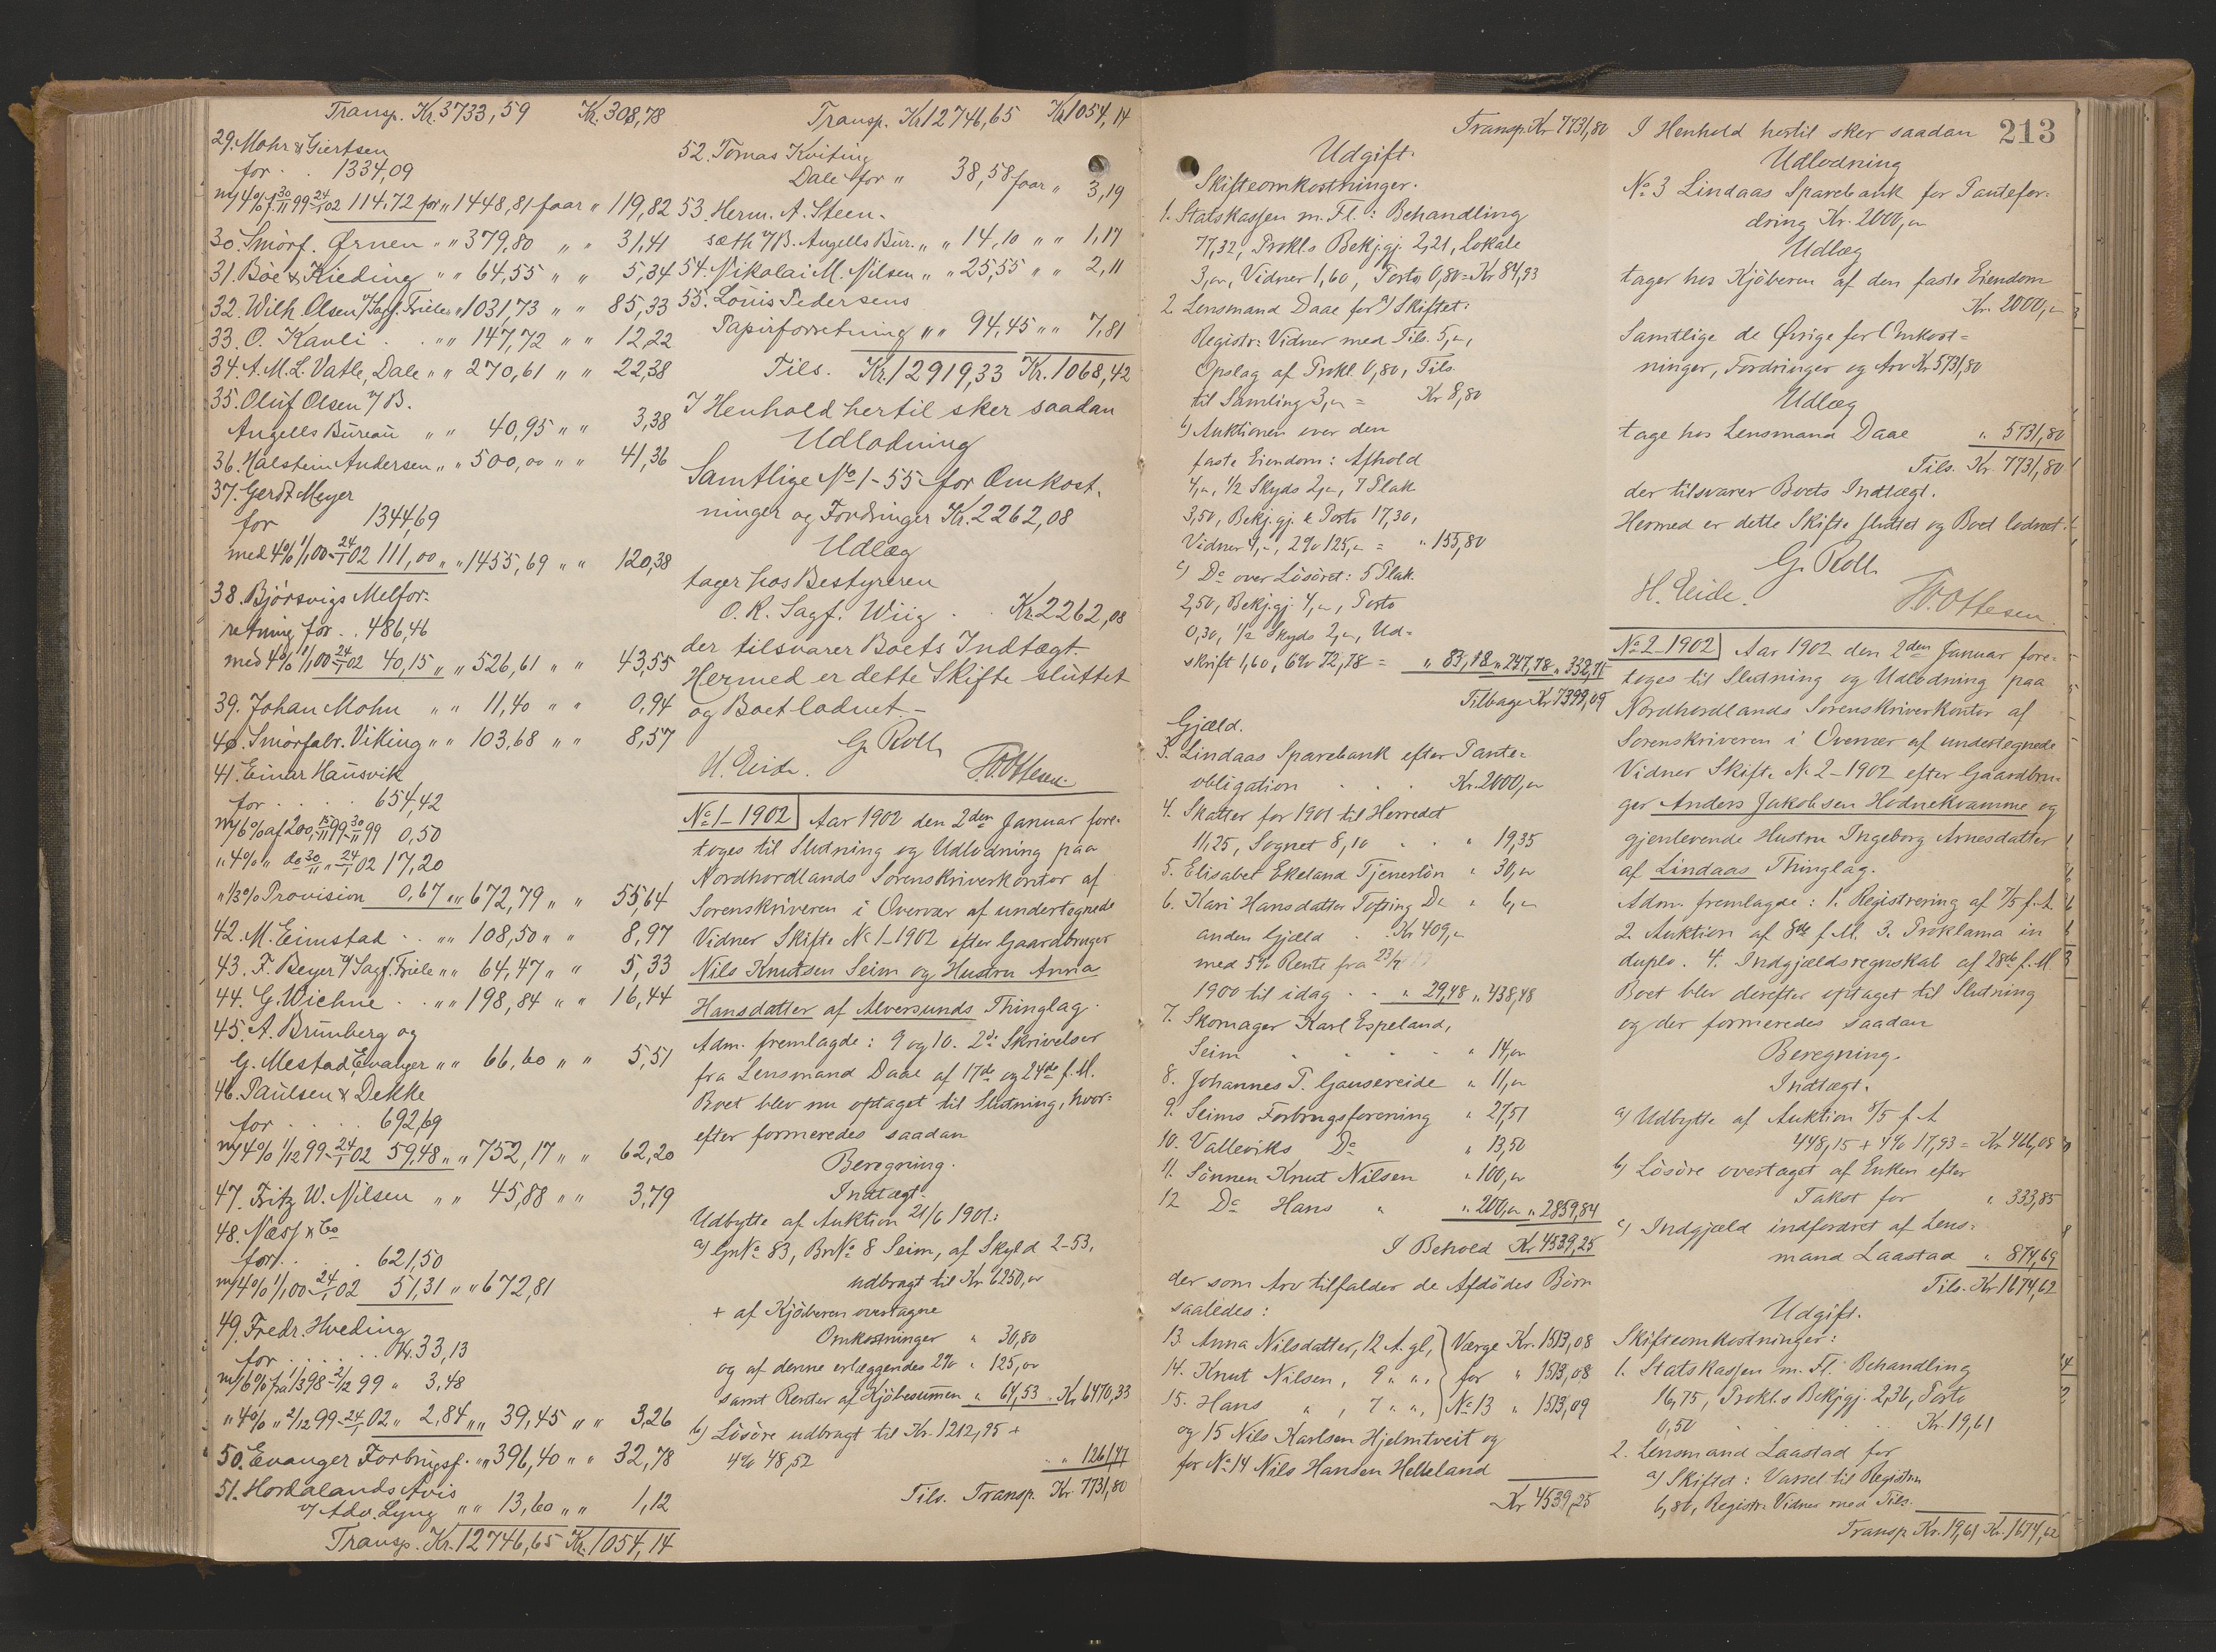 Transp. Kr. 3733,59 Kr. 308,78
29. Mohr & Giertsen
for . . 1334,09
m/4% f. 30/11 99-24/1 02 114.72 for " 1448,81 faar " 119,82
30. Smörf. Ørnen " " 379,80 " " 31,41
31. Böe & Kieding " " 64,55 " " 5,34
32. Wilh. Olsen v/Sagf. Friele " 1031,73 " " 85,33
33. O. Kavli . . " " 147,72 " " 12,22
34. A. M. L. Vatle, Dale " " 270,61 " " 22,38
35. Oluf Olsen v/ B.
Angells Büreaü " " 40,95 " " 3,38
36. Halstein Andersen " " 500,00 " " 41,36
37. Gerdt Meyer
for 1344,69
med 4% 1/1 00-24/1 02 111,00 " " 1455,69 " " 120,38
38. Björsvigs Melfor-
retning for . . 486,46
med 4% 1/1 00-24/1 02 40,15 " " 526,61 " " 43,55
39. Johan Mohn " " 11,40 " " 0,94
40. Smörfabr. Viking " " 103,68 " " 8,57
41. Einar Haüsvik
for . . . . . 654,42
m/6% af 200, 15/11 99-30/11 99 0,50
" 4% " do 30/11 " 24/1 02 17,20
" 1/3% Provision 0,67 " " 672,79 " " 55,64
42. M. Eimstad . . " " 108,50 " " 8,97
43. F. Beyer v/ Sagf. Friele " " 64,47 " " 5,33
44. G. Wiehne . . " " 198,84 " " 16,44
45. A. Brünberg og
G. Mestad, Evanger " " 66,60 " " 5,51
46. Paülsen & Dekke
for . . . . 692,69
m/4% 1/12 99-24/1 02 59,48 " " 752,17 " " 62,20
47. Fritz W. Nilsen " " 45,88 " " 3,79
48. Næss & Co
for . . . 621,50
m/4% 1/1 00-24/1 02 51,31 " " 672,81
49. Fredr. Hveding
for . . . . . . Kr. 33,13
m/6% fra 1/3 98-2/12 99 " 3,48
" 4% " 2/12 99-24/1 02 " 2,84 " " 39,45 " " 3,26
50. Evanger Forbrugsf. " " 396,40 " " 32,78
51. Hordalands Avis
v/ Adv. Lyng " " 13,60 " " 1,12
Transp. Kr. 12746,65 Kr. 1054,14
Transp. Kr. 12746,65 Kr. 1054,14
52. Tomas Kviting
Dale for " 38,58 faar " 3,19
53. Herm. A. Steen-
sæth v/B. Angells Bür. " " 14,10 " " 1,17
54. Nikolai M. Nilsen " " 25,55 " " 2,11
55. Loüis Pedersens
Papirforretning " " 94,45 " " 7,81
Tils. Kr. 12919,33 Kr. 1068,42
I Henhold hertil sker saadan
Udlodning
Samtlige No 1-55 for Omkost-
ninger og Fordringer Kr. 2262,08
Udlæg
tager hos Bestyreren
O. R. Sagf. Wiig . . Kr. 2262,08
der tilsvarer Boets Indtægt.
Hermed er dette Skifte sluttet
og Boet lodnet.-
G. Roll
H. Eide. Ottesen
No 1-1902 Aar 1902 den 2den Januar fore-
toges til Slutning og Udlodning paa
Nordhordlands Sorenskriverkontor af
Sorenskriveren i Overvær af undertegnede
Vidner Skifte No 1-1902 efter Gaardbruger
Nils Knutsen Seim og Hustru Anna
Hansdatter af Alversunds Thinglag.
Adm. fremlagde: 9 og 10. 2de Skrivelser
fra Lensmand Daae af 17de og 24de f. M.
Boet blev nu optaget til Slutning, hvor-
efter formeredes saadan
Beregning.
Indtægt.
Udbytte af Auktion 21/6 1901:
a) GnNo 83, BnNo 8 Seim, af Skyld 2-53,
udbragt til Kr 6250,00
+ af Kjöberen overtagne
Omkostninger " 30,80
og af denne erlæggendes 2% " 125,00
samt Renter af Kjöbesummen " 64,53 . Kr 6470,33
b) Lösöre udbragt til Kr. 1212,95 +
4% 48,52 . . " 1261,47
Tils. Transp. Kr. 7731,80
Transp. Kr 7731,80
Udgift.
Skifteomkostninger.
1. Statskassen m. Fl.: Behandling
77,32, Prokl.s Bekj.gj. 2,21, Lokale
3,00, Vidner 1,60, Porto 0,80 = Kr 84,93
2. Lensmand Daae for a) Skiftet:
Registr: Vidner med Tils. 5,00,
Opslag af Prokl. 0,80, Tils.
til Samling 3,00 = Kr 8,80
b) Auktionen over den
faste Eiendom: Afhold
4,00, 1/2 Skyds 2,00, 7 Plak
3,50, Bekj.gj. & Porto 17,30,
Vidner 4,-, 2% 125,00 = " 155,80
c) Do over Lösöret: 5 Plak.
2,50, Bekj.gj. 4,00, Porto
0,30, 1/2 Skyds 2,00, Ud-
skrift 1,60, 6% 72,78 = " 83,18 " 247,78 " 332,71
Tilbage Kr 7399,09
Gjæld.
3. Lindaas Sparebank efter Pante-
obligation . . . Kr. 2000,00
4. Skatter for 1901 til Herredet
11,25, Sognet 8,10 . . " 19,35
5. Elisabet Ekeland Tjenerlön " 30,00
6. Kari Hansdatter Tofting Do " 6,00
anden Gjæld . Kr 409,00
med 5% Rente fra 23/7
1900 til idag . . " 29,48 " 438,48
7. Skomager Karl Espeland,
Seim . . . . . " 14,00
8. Johannes P. Gausereide " 11,00
9. Seims Forbrugsforening " 27,51
10. Valleviks Do " 13,50
11. Sönnen Knut Nilsen " 100,00
12 Do Hans " " 200,00 " 2859,84
I Behold Kr 4539,25
der som Arv tilfalder de Afdödes Börn
saaledes:
13. Anna Nilsdatter, 12 A. gl, Værge Kr. 1513,08
14. Knut Nilsen, 9 " ", for " 1513,08
15. Hans " , 7 " ", No 13 " 1513,09
og 15 Nils Karlsen Hjelmtveit og
for No 14 Nils Hansen Helleland
Kr 4539,25
213
I Henhold hertil sker saadan
Udlodning
No 3 Lindaas Sparebank for Pantefor-
dring Kr. 2000,00
Udlæg
tager hos Kjöberen af den faste Eiendom
Kr. 2000,00
Samtlige de Øvrige for Omkost-
ninger, Fordringer og Arv Kr 5731,80
Udlæg
tage hos Lensmand Daae " 5731,80
Tils. Kr. 7731,80
der tilsvarer Boets Indtægt.
Hermed er dette Skifte sluttet og Boet lodnet.
G. Roll.
H. Eide. Ottesen.
No 2-1902 Aar 1902 den 2den Januar fore-
toges til Slutning og Udlodning paa
Nordhordlands Sorenskriverkontor af
Sorenskriveren i Overvær af undertegnede
Vidner Skifte No 2-1902 efter Gaardbru-
ger Anders Jakobsen Hodnekvamme og
gjenlevende Hustru Ingeborg Arnesdatter
af Lindaas Thinglag.
Adm. fremlagde: 1. Registrering af 7/5 f. A.
2. Auktion af 8de f. M. 3. Proklama in
duplo. 4. Indgjældsregnskab af 28de f. M.
Boet blev derefter optaget til Slutning
og der formeredes saadan
Beregning.
Indtægt.
a) Udbytte af Auktion 8/5 f. A
448,15 + 4% 17,93 = Kr 466,08
b) Lösöre overtaget af Enken efter
Takst for " 333,85
c) Indgjæld indfordret af Lens-
mand Laastad " 874,69
Tils. Kr. 1674,62
Udgift.
Skifteomkostninger:
1. Statskassen m. Fl.: Behandling
16,75, Prokl.s Bekj.gj. 2,36, Porto
0,50 . . . Kr. 19,61
2. Lensmand Laastad for
a) Skiftet: Varsel til Registr
6,80, Registr: Vidner med Tils.
Transp. Kr. 19,61 Kr. 1674,62